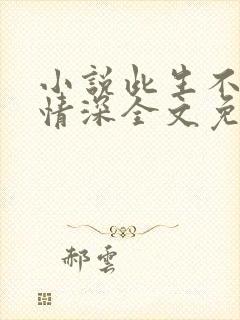 小説此生不
情深全文免
郝雲